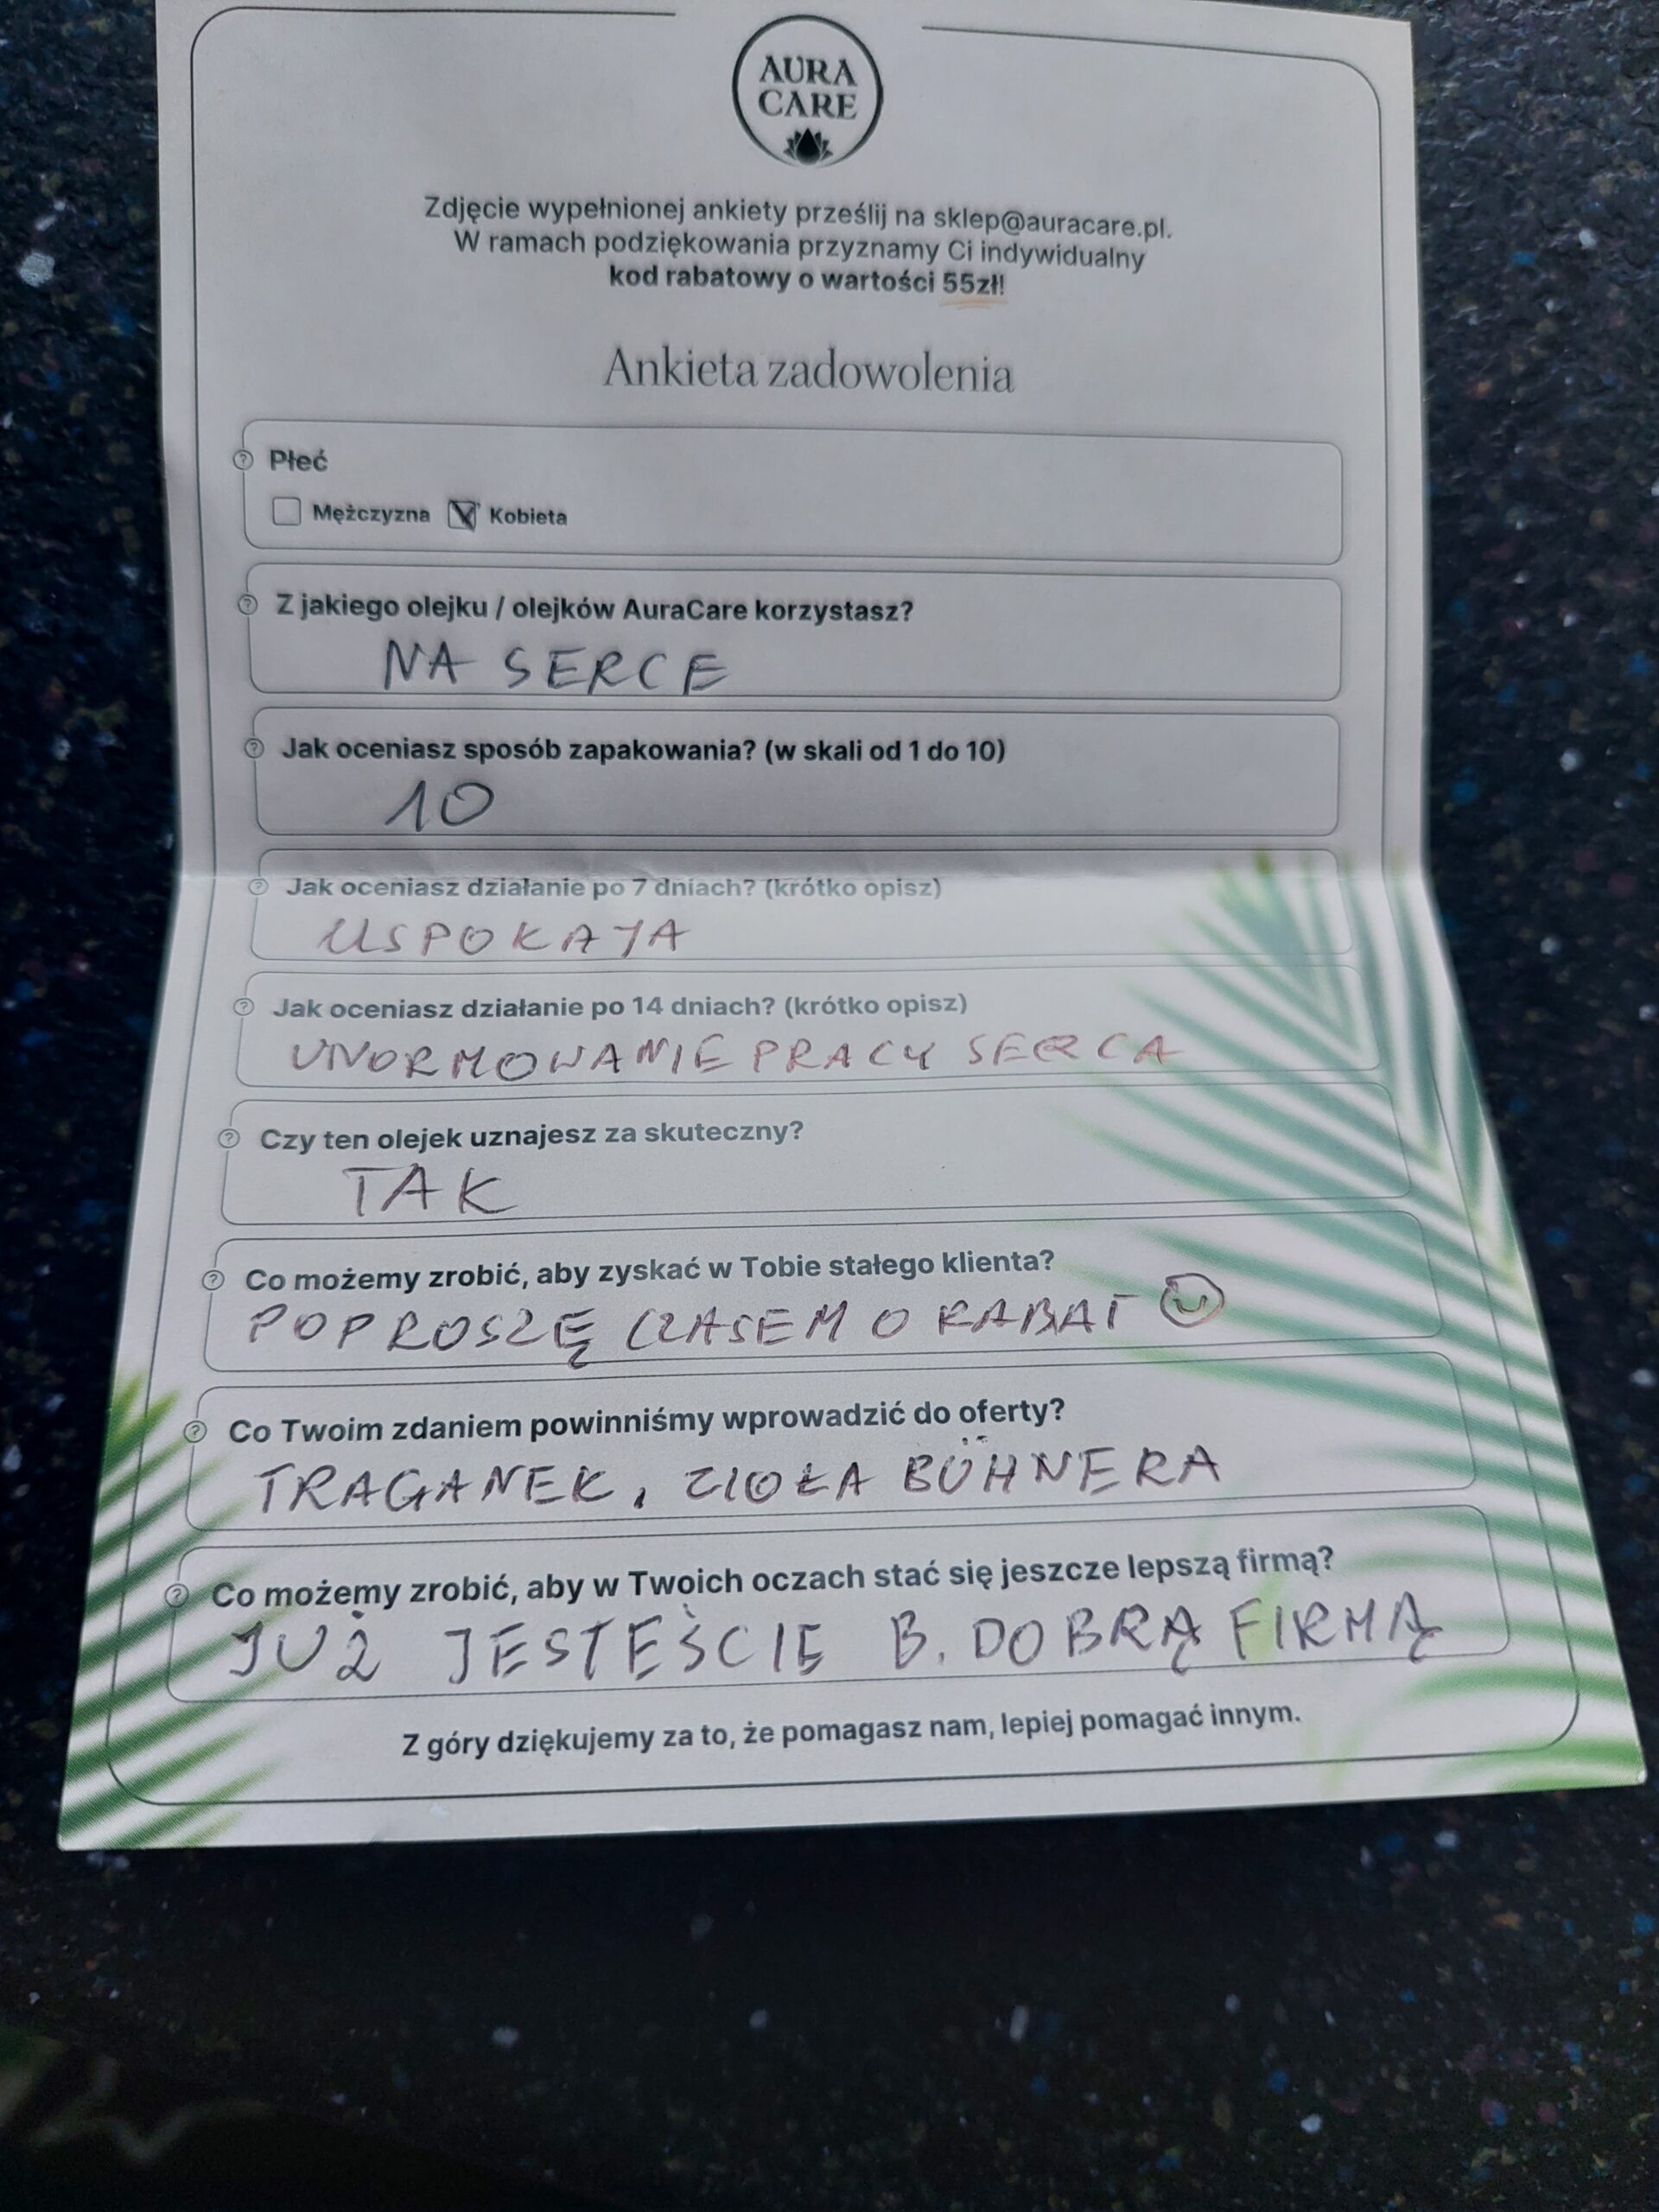 AURA
CARE
Zdjęcie wypełnionej ankiety prześlij na sklep@auracare.pl.
W ramach podziękowania przyznamy Ci indywidualny
kod rabatowy o wartości 55zł!
Ankieta zadowolenia
Płeć
Mężczyzna Kobieta
Z jakiego olejku / olejków AuraCare korzystasz?
NA SERCE
Jak oceniasz sposób zapakowania? (w skali od 1 do 10)
10
Jak oceniasz działanie po 7 dniach? (krótko opisz)
USPOKAJA
Jak oceniasz działanie po 14 dniach? (krótko opisz)
UNORMOWANIE PRACY SERCA
Czy ten olejek uznajesz za skuteczny?
TAK
Co możemy zrobić, aby zyskać w Tobie stałego klienta?
POPROSZĘ CZASEM O RABAT
Co Twoim zdaniem powinniśmy wprowadzić do oferty?
TRAGANEK, ZIOŁA BÜHNERA
Co możemy zrobić, aby w Twoich oczach stać się jeszcze lepszą firmą?
JUŻ JESTEŚCIE B. DOBRĄ FIRMĄ
Z góry dziękujemy za to, że pomagasz nam, lepiej pomagać innym.